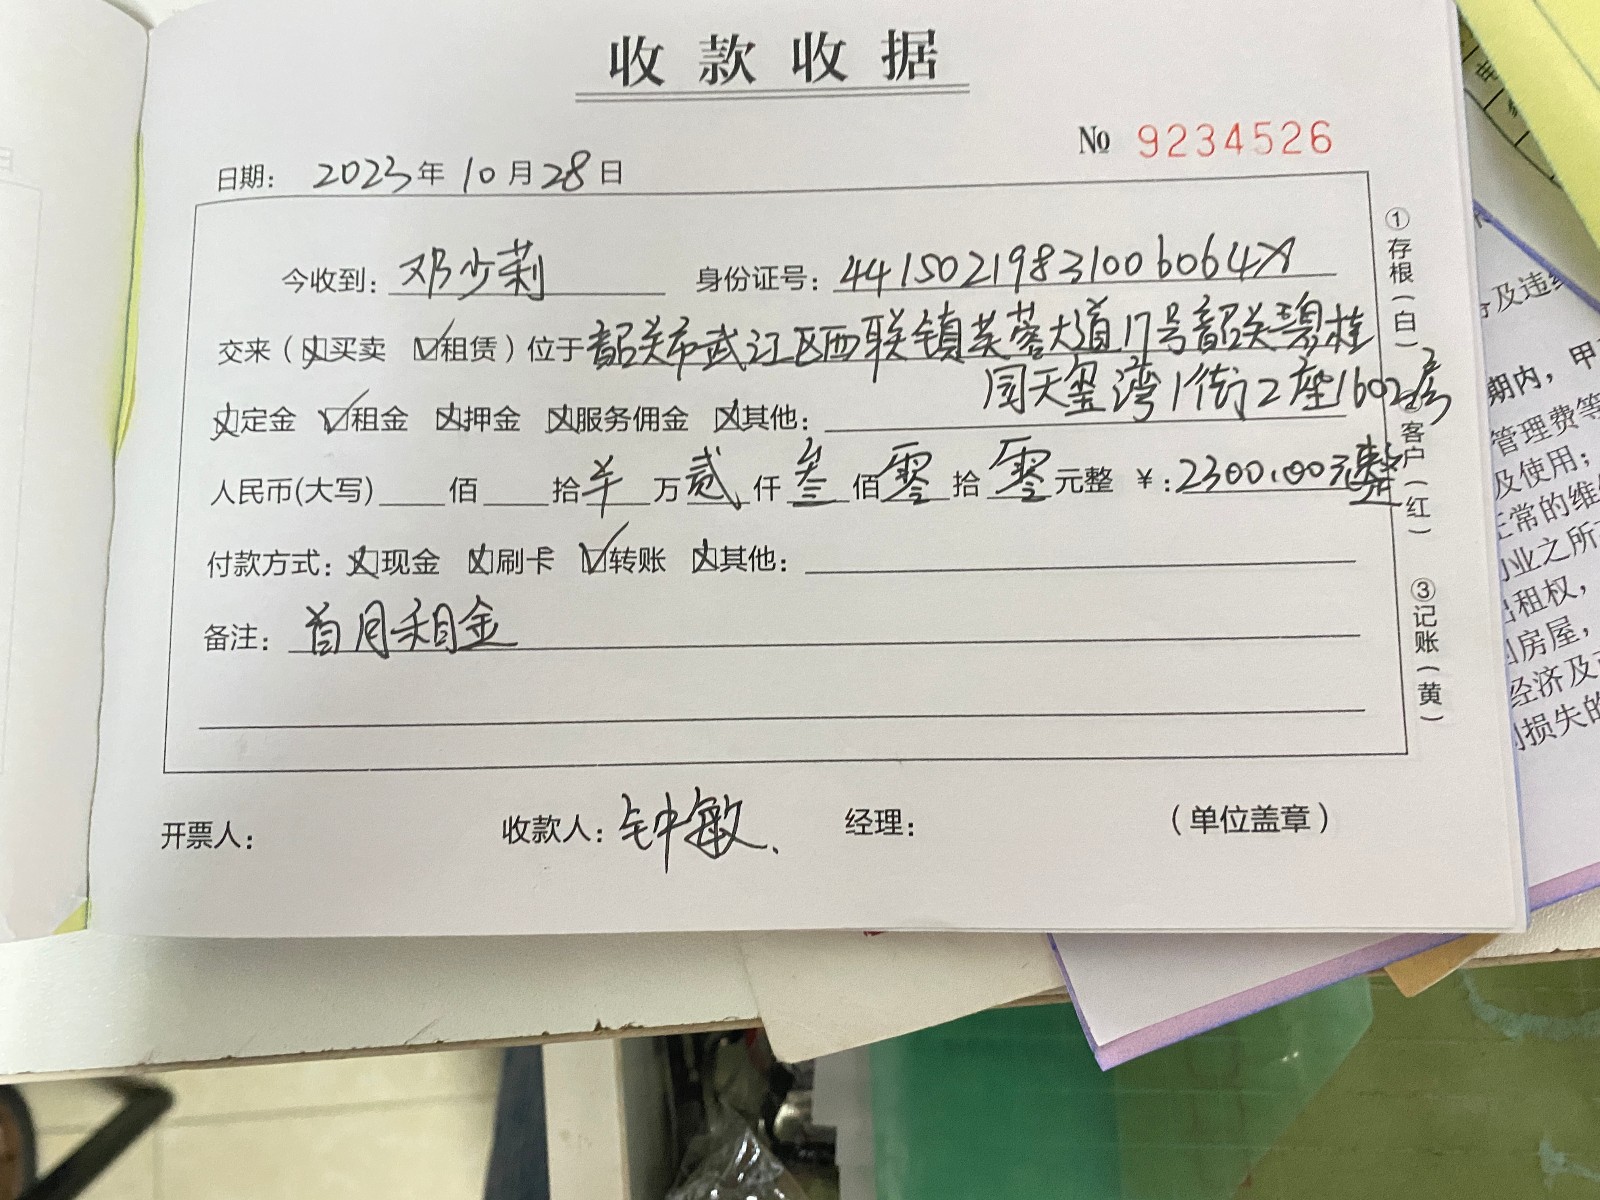 收款收据
№ 9234526
日期： 2023年 10月28日
今收到：邓少莉 身份证号：44150219831006064X
交来（☒买卖 ☑租赁）位于韶关市武江区西联镇芙蓉大道17号韶关碧桂
园天玺湾1街2座1602房
☒定金 ☑租金 ☒押金 ☒服务佣金 ☒其他：
人民币(大写) 佰 拾 ¥ 万 贰 仟 叁 佰 零 拾 零 元整 ¥：2300.00元整
付款方式：☒现金 ☒刷卡 ☑转账 ☒其他：
备注：首月租金
开票人： 收款人：钟敏 经理： （单位盖章）
①存根（白）
②客户（红）
③记账（黄）
期内，甲
管理费等
及使用；
正常的维
业之所
出租权，
房屋，
经济及
损失的